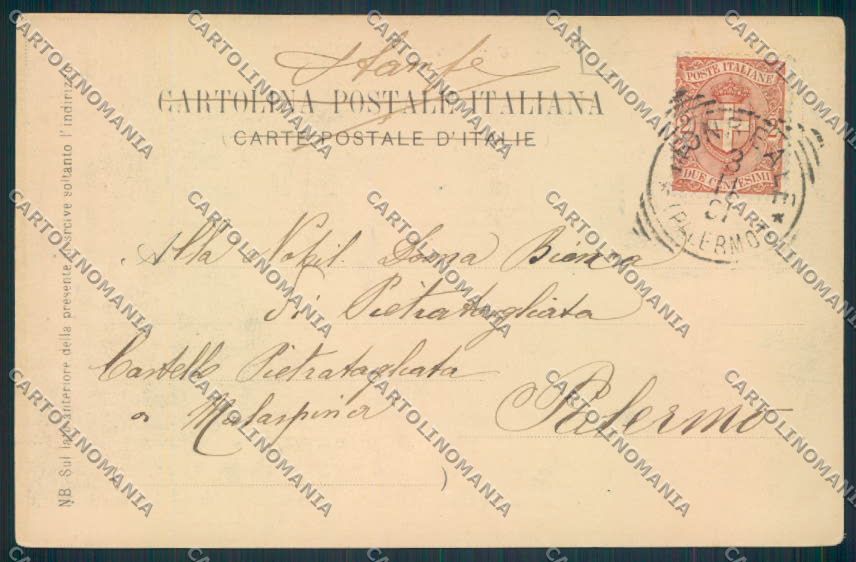 Stampe
CARTOLINA POSTALE ITALIANA
CARTE POSTALE D'ITALIE
POSTE ITALIANE
2 2
DUE CENTESIMI
MONREALE
3
12
01
* (PALERMO) *
Alla Nobil. Donna Bianca
di Pietratagliata
Castello Pietratagliata
a Malaspina
Palermo
)
NB. Sul lato anteriore della presente si scrive soltanto l'indirizzo
CARTOLINOMANIA